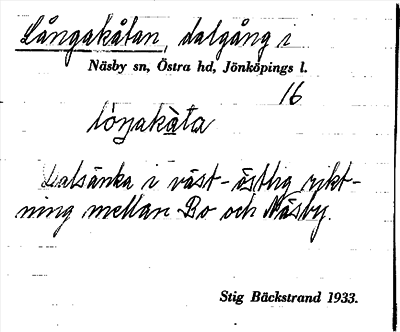 Långakåtan, dalgång i
Näsby sn, Östra hd, Jönköpings l.
16
lòŋakàta
Dalsänka i väst-östlig rikt-
ning mellan Bo och Näsby.
Stig Bäckstrand 1933.